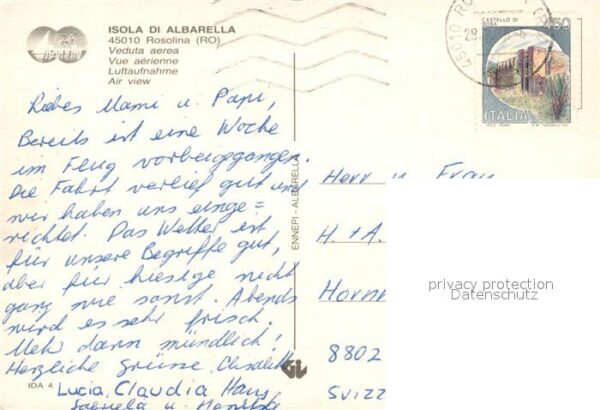 ISOLA DI ALBARELLA
45010 Rosolina (RO)
Veduta aerea
Vue aérienne
Luftaufnahme
Air view
CASTELLO DI
450
ITALIA
Liebes Mami u. Papi,
Bereits ist eine Woche
im Flug vorbeigegangen.
Die Fahrt verlief gut und
wir haben uns einge=
richtet. Das Wetter ist
für unsere Begriffe gut,
aber für hiesige nicht
ganz wie sonst. Abends
wird es sehr frisch.
Mehr dann mündlich!
Herzliche Grüsse,
Lucia, Claudia Hans
u.
IDA 4
ENNEPI - ALBARELLA
Herr u. Frau
H. + A.
8802
Svizz
privacy protection
Datenschutz